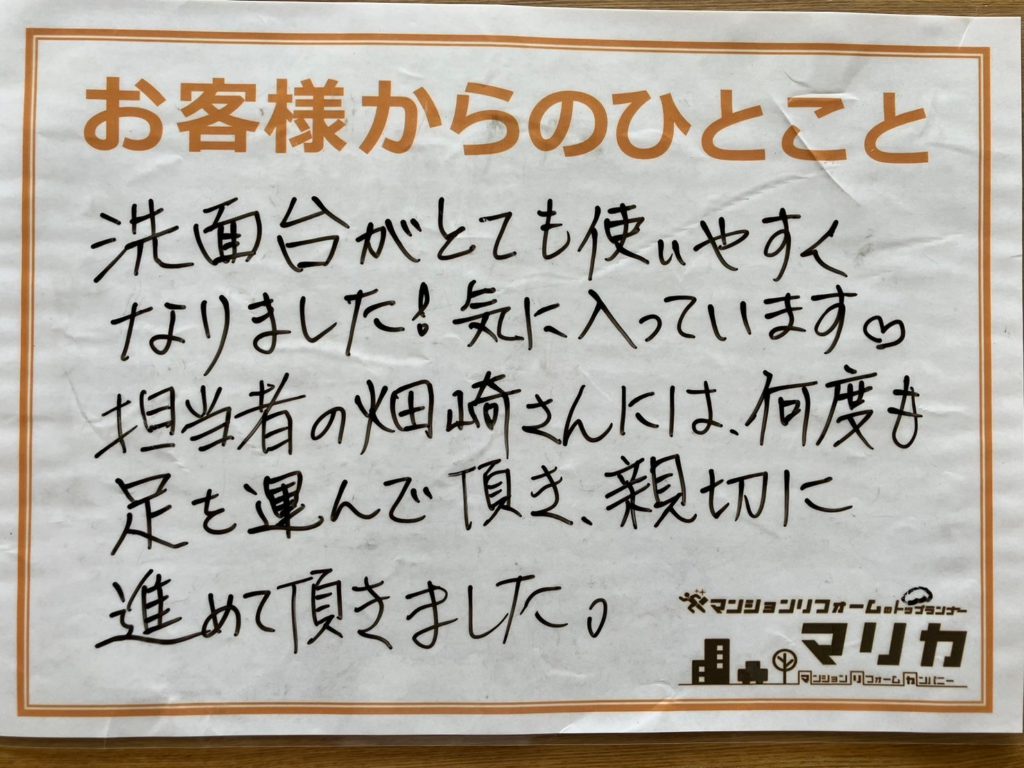 お客様からのひとこと
洗面台がとても使いやすく
なりました!気に入っています♡
担当者の畑崎さんには、何度も
足を運んで頂き、親切に
進めて頂きました。
マンションリフォームのトップランナー
マリカ
マンションリフォームカンパニー